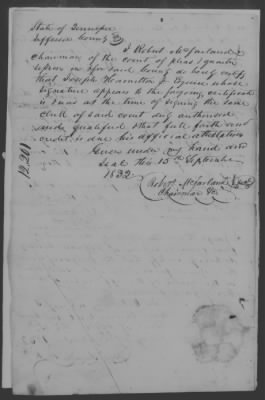 State of Tennessee
Jefferson County
I Robert McFarland
chairman of the court of pleas & quarter
sessions in & for said County do hereby certify
that Joseph Hamilton Esquire whose
signature appears to the foregoing certificate
is & was at the time of signing the same
clerk of said court duly authorised
and qualified & that full faith and
credit is due his official attestation
Given under my hand and
seal this 15th September
1832
Robert McFarland
Chairman &c